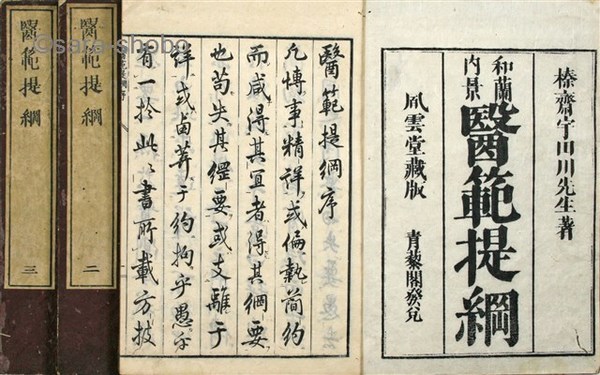 榛齋宇田川先生著
和蘭
内景
醫範提綱
風雲堂藏版
青藜閣發兌
醫範提綱序
凡博事精詳或偏執簡約
而咸得其宜者得其綱要
也苟失其綱要或支離于
詳或鹵莽于約拘乎愚
有一於此書所載方技
醫範提綱 二
醫範提綱 三
©sara-shobo